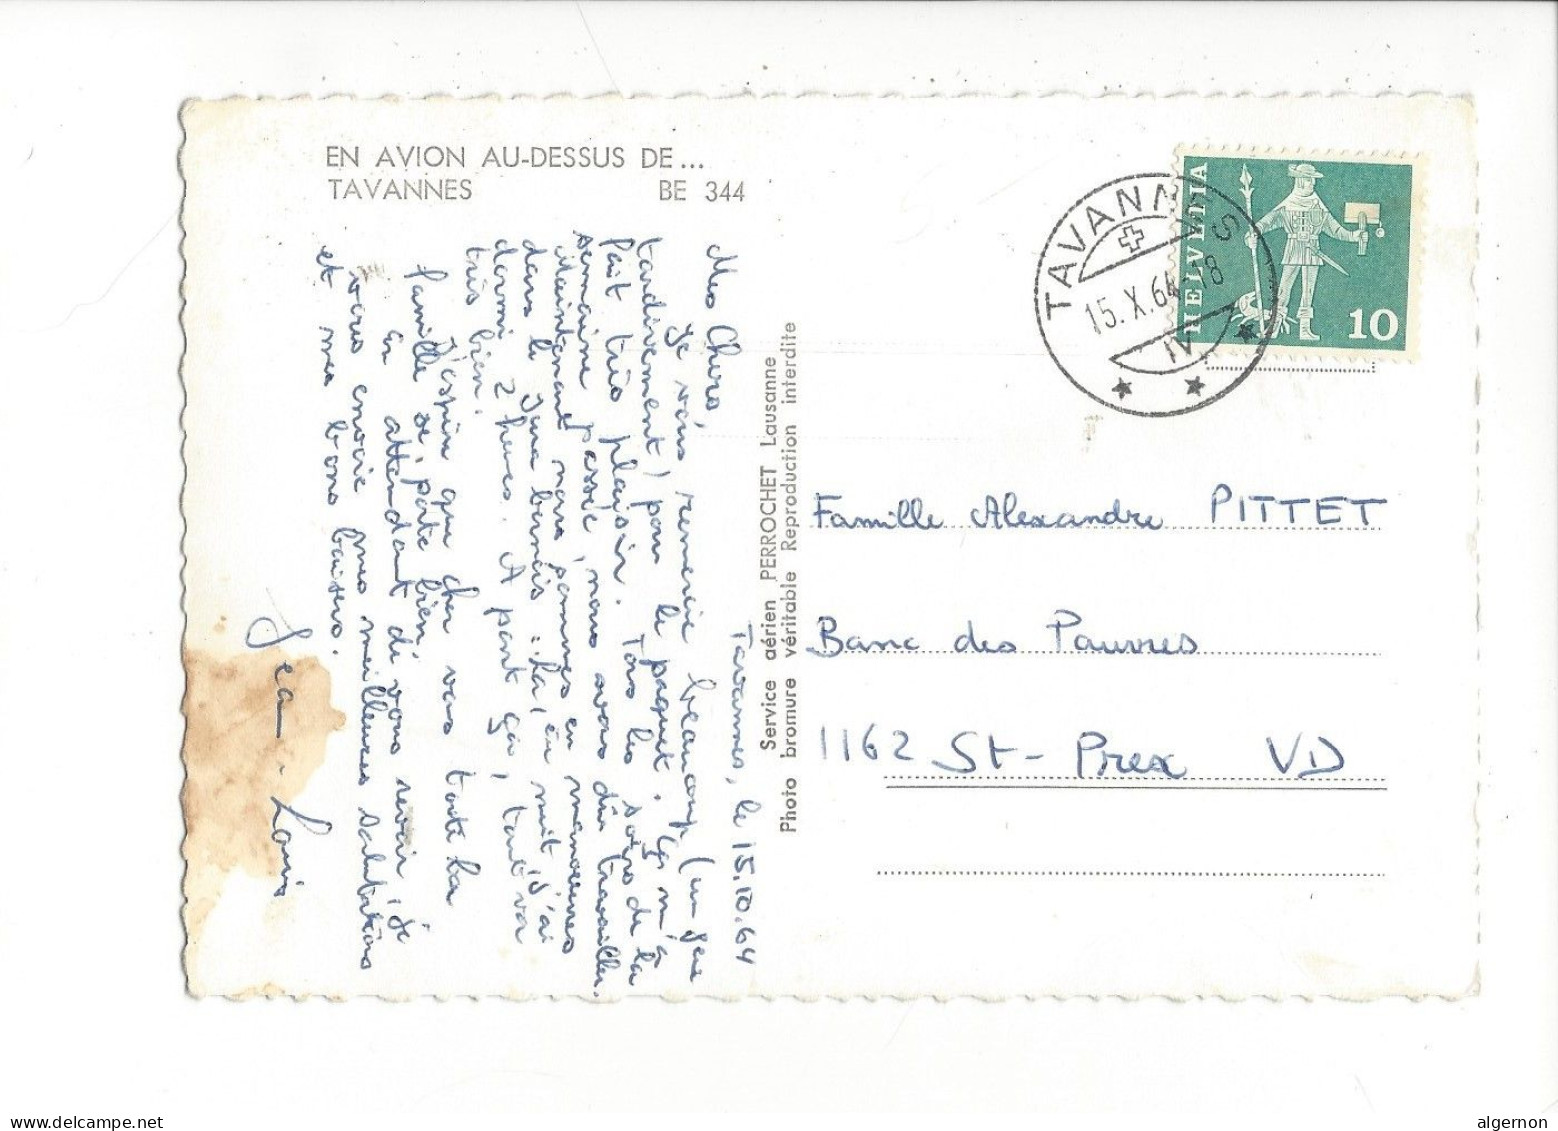 EN AVION AU-DESSUS DE...
TAVANNES BE 344
Tavannes, le 15.10.64
Mes Chers,
Je vous remercie beaucoup (un peu
tardivement) pour le paquet. Ça m'a
fait très plaisir. Tous les soirs de la
semaine passée, nous avons dû travailler.
Maintenant nous sommes en manoeuvres
dans le Jura bernois. La, en nuit j'ai
dormi 2 heures. A part ça, tout va
très bien.
J'espère que chez vous toute la
famille se porte bien.
En attendant de vous revoir, je
vous envoie mes meilleures salutations
et mes bons baisers.
Jean-Louis
Service aérien PERROCHET Lausanne
Photo bromure véritable Reproduction interdite
HELVETIA
10
TAVANNES
15.X.64-18
IV
Famille Alexandre PITTET
Banc des Pauvres
1162 St-Prex VD
algernon